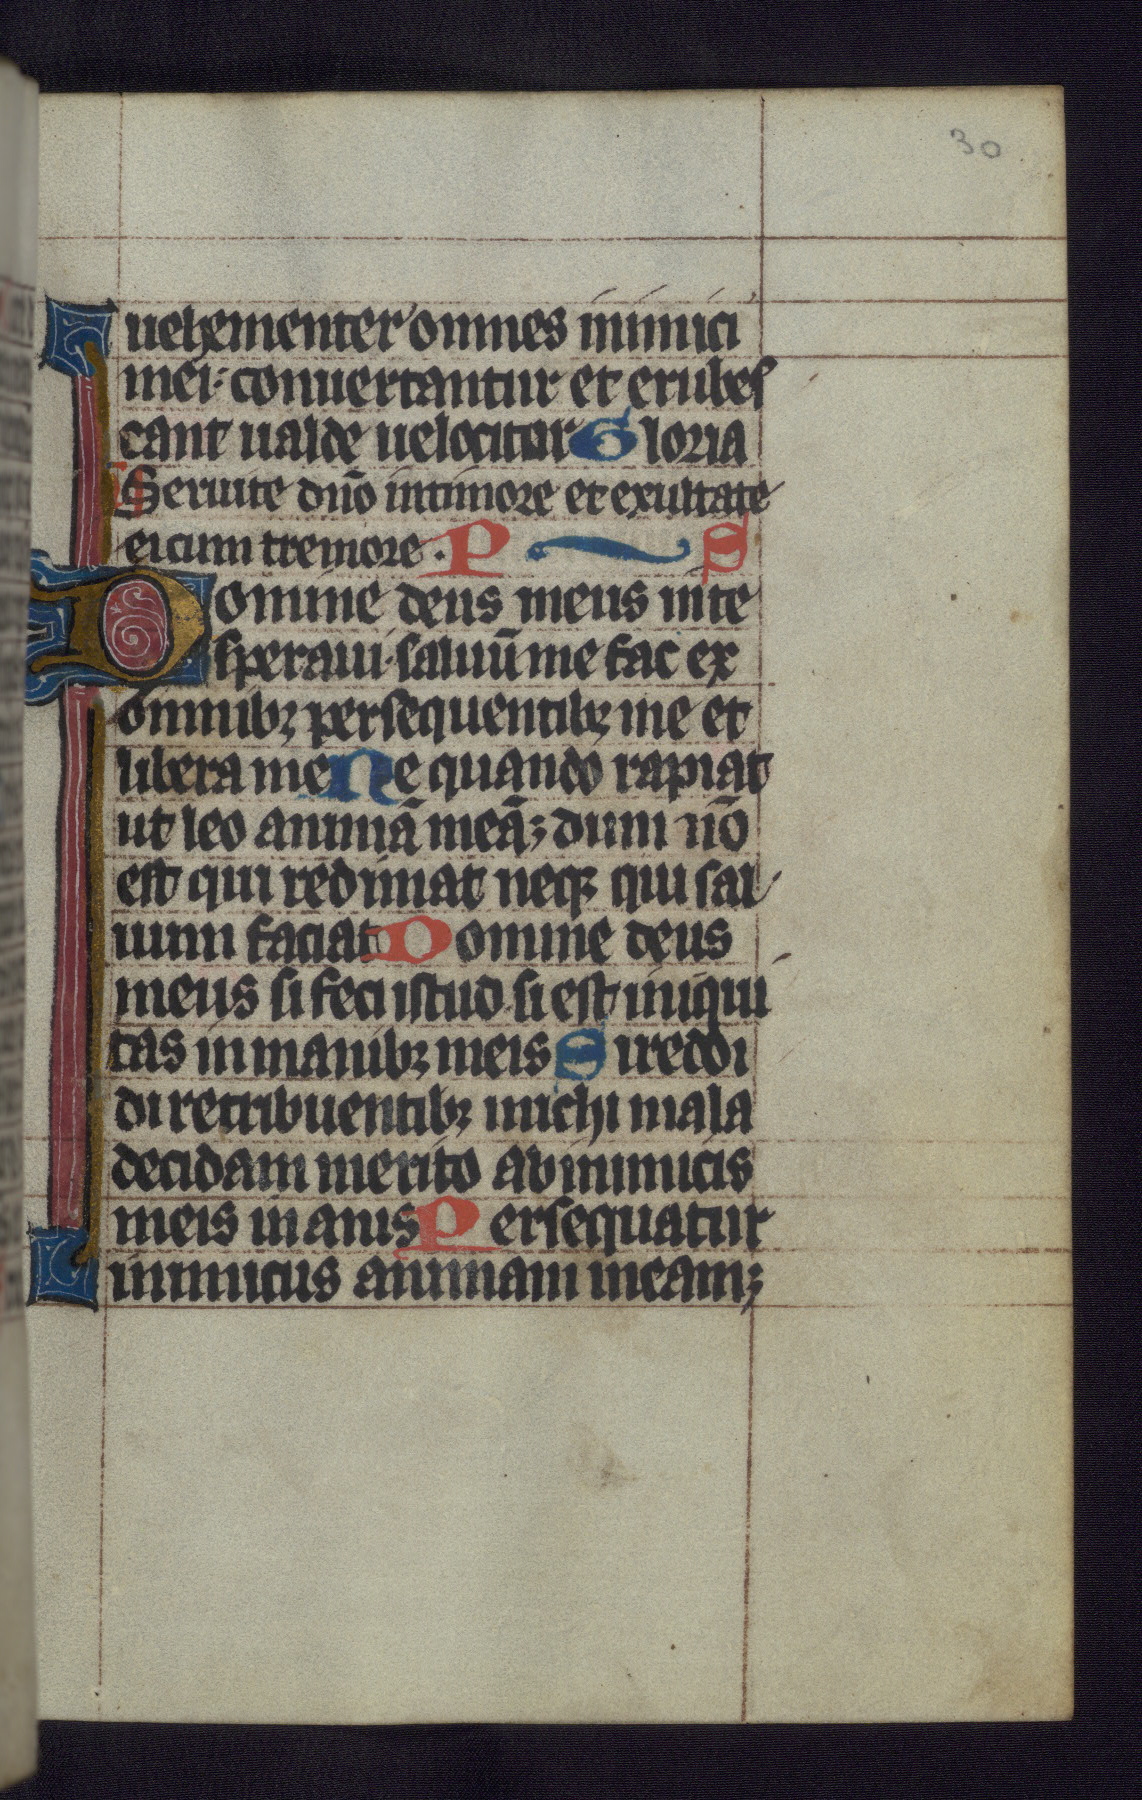 30
uehementer omnes inimici
mei· conuertantur et erubes
cant ualde uelociter Gloria
Seruite dn̄o intimore et exultate
ei cum tremore · P S
Domine deus meus inte
speraui· saluū me fac ex
omnibꝫ persequentibꝫ me et
libera me Ne quando rapiat
ut leo animā meā; dum nō
est qui redimat neqꝫ qui sal
uum faciat Domine deus
meus si feci istud si est iniqui
tas in manibꝫ meis Si reddi
di retribuentibꝫ michi mala
decidam merito ab inimicis
meis inanis Persequatur
inimicus animam meam;